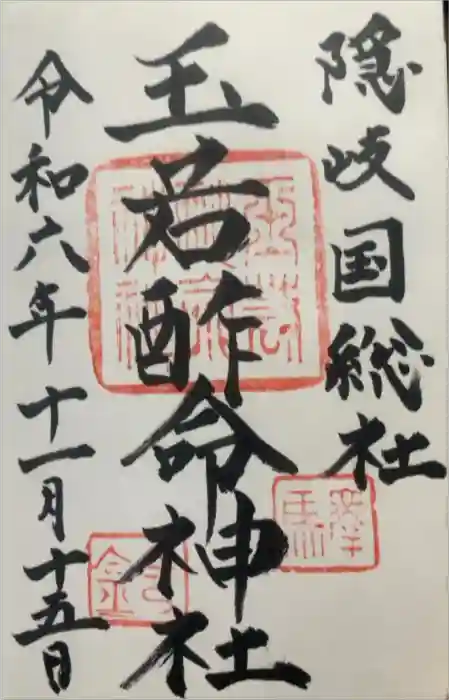 隠岐国総社
玉若酢命神社
令和六年十一月十五日